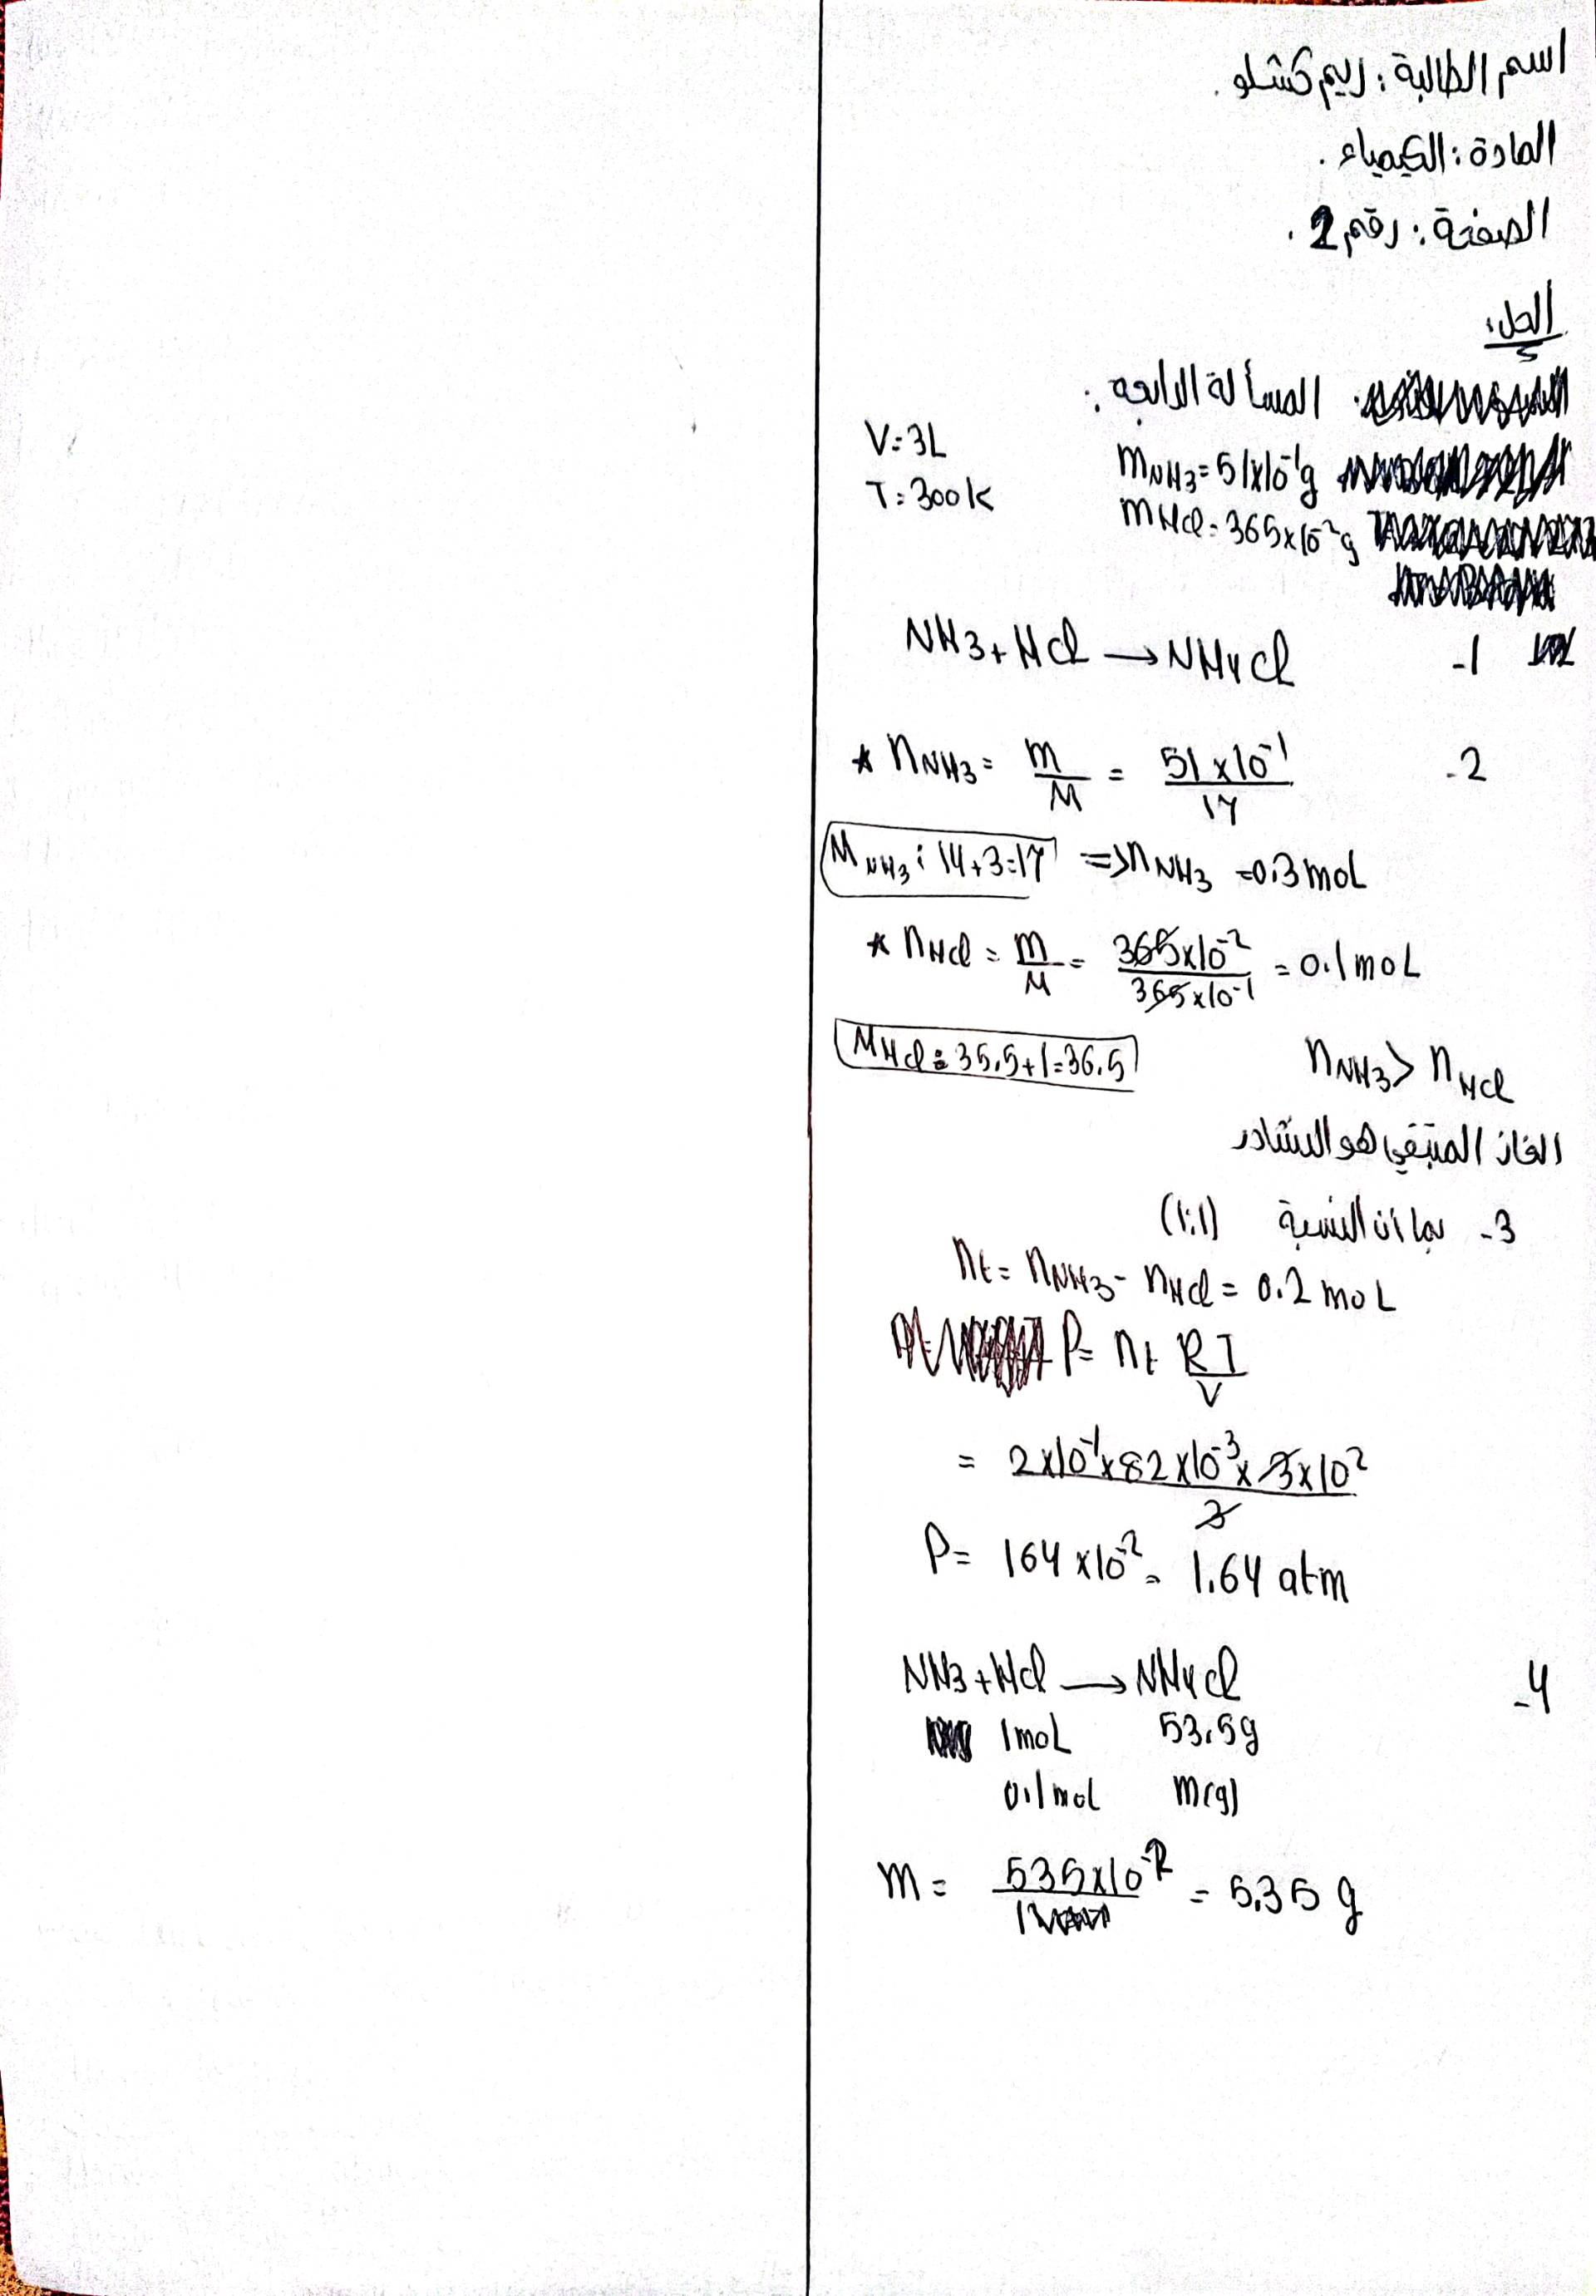 اسم الطالبة : ريم كشلو .
المادة : الكيمياء .
الصفحة : رقم 2 .
الحل :
المسألة الرابعة :
V = 3L
T = 300 K
m NH3 = 51x10^-1 g
m HCl = 365x10^-2 g
1- NH3 + HCl → NH4Cl
2- * n NH3 = m/M = 51x10^-1 / 17
M NH3 : 14+3=17 => n NH3 = 0.3 mol
* n HCl = m/M = 365x10^-2 / 365x10^-1 = 0.1 mol
M HCl : 35.5+1=36.5
n NH3 > n HCl
الغاز المتبقي هو النشادر
3- بما أن النسبة (1:1)
nt = n NH3 - n HCl = 0.2 mol
P = nt RT/V
= 2x10^-1 x 82x10^-3 x 3x10^2 / 3
P = 164x10^-2 = 1.64 atm
4- NH3 + HCl → NH4Cl
1mol 53.5g
0.1mol m(g)
m = 535x10^-2 / 1 = 5.35 g